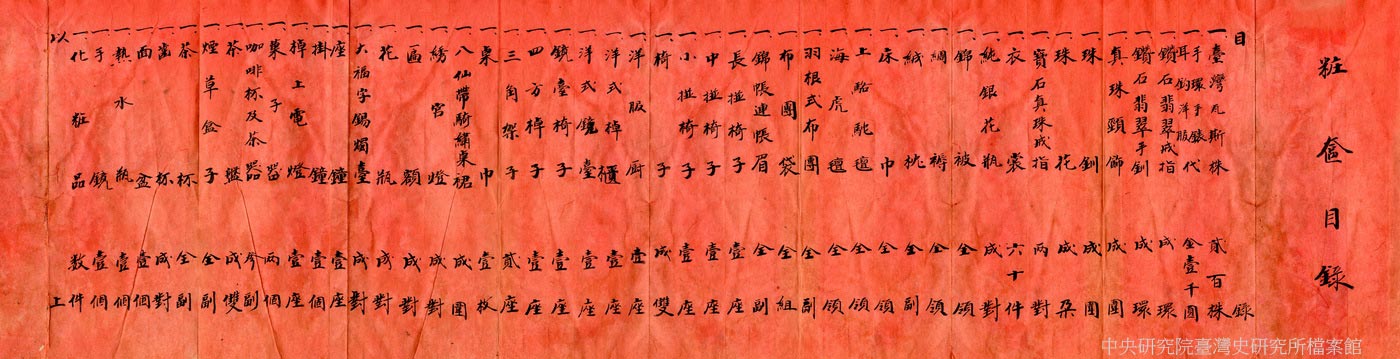 粧奩目錄
目錄
一臺灣瓦斯株 貳百株
一手環手錶代 耳鈎洋服 金壹千圓
一鑽石翡翠戒指 成環
一鑽石翡翠手釧 成環
一真珠頸飾 成圓
一珠釧 成圓
一珠花 成朶
一寶石真珠戒指 兩對
一衣裳 六十件
一純銀花瓶 成對
一錦被 全領
一綢褥 全領
一絨枕 全副
一床巾 全領
一上駱駝氊 全領
一海虎氊 全領
一羽根式布團 全副
一布團袋 全組
一錦帳連帳眉 全副
一長椪椅子 壹座
一中椪椅子 壹座
一小椪椅子 壹座
一椅子 成雙
一洋服厨 壹座
一洋式棹櫃 壹座
一洋式鏡臺 壹座
一鏡臺椅子 壹座
一四方棹子 壹座
一三角架子 貳座
一桌巾 壹枚
一八仙帶騎繡桌裙 成圍
一綉宮燈 成對
一匾額 成對
一花瓶 成對
一大福字錫燭臺 成對
一座鐘 壹座
一掛鐘 壹個
一棹上電燈 壹座
一菓子器 兩個
一咖啡杯及茶器 參副
一茶盤 成雙
一煙草盒子 全副
一茶杯 全副
一窰杯 成對
一面盆 壹個
一熱水瓶 壹個
一手鏡 壹個
一化粧品 数件
以上
中央研究院臺灣史研究所檔案館